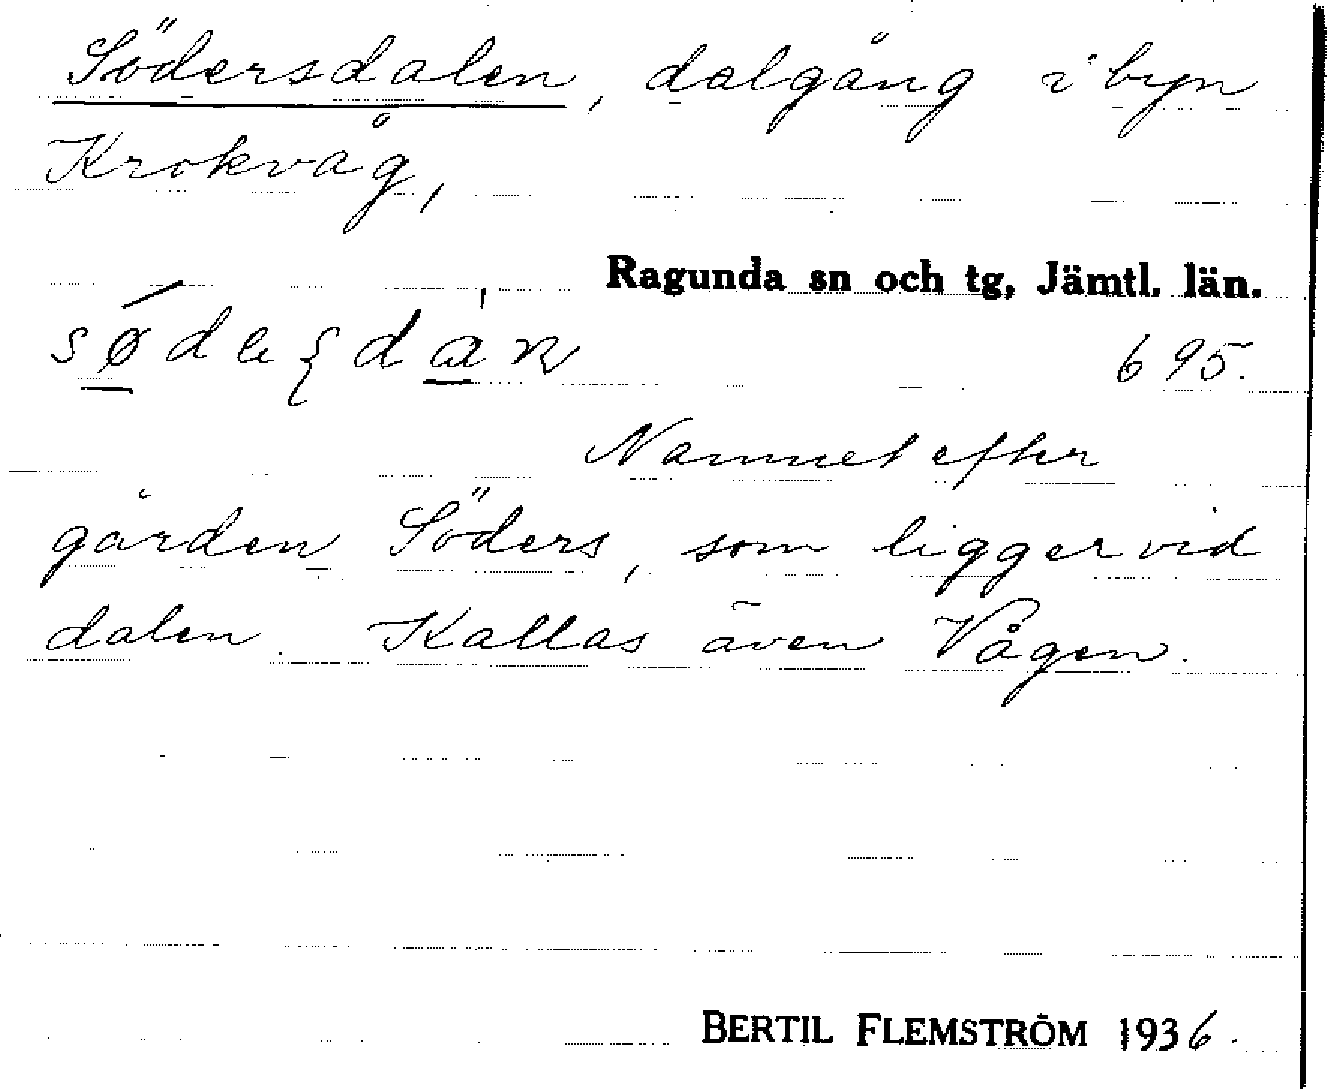 Södersdalen, dalgång i byn
Krokvåg,
Ragunda sn och tg, Jämtl. län.
695.
Namnet efter
gården Söders, som ligger vid
dalen. Kallas även Vågen.
BERTIL FLEMSTRÖM 1936.